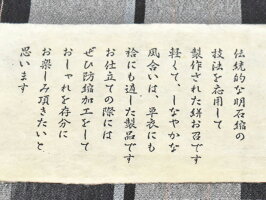 伝統的な明石縮の
技法を応用して
製作された絣お召です
軽くて、しなやかな
風合いは、単衣にも
袷にも適した製品です
お仕立ての際には
ぜひ防縮加工をして
おしゃれを存分に
お楽しみ頂きたいと
思います